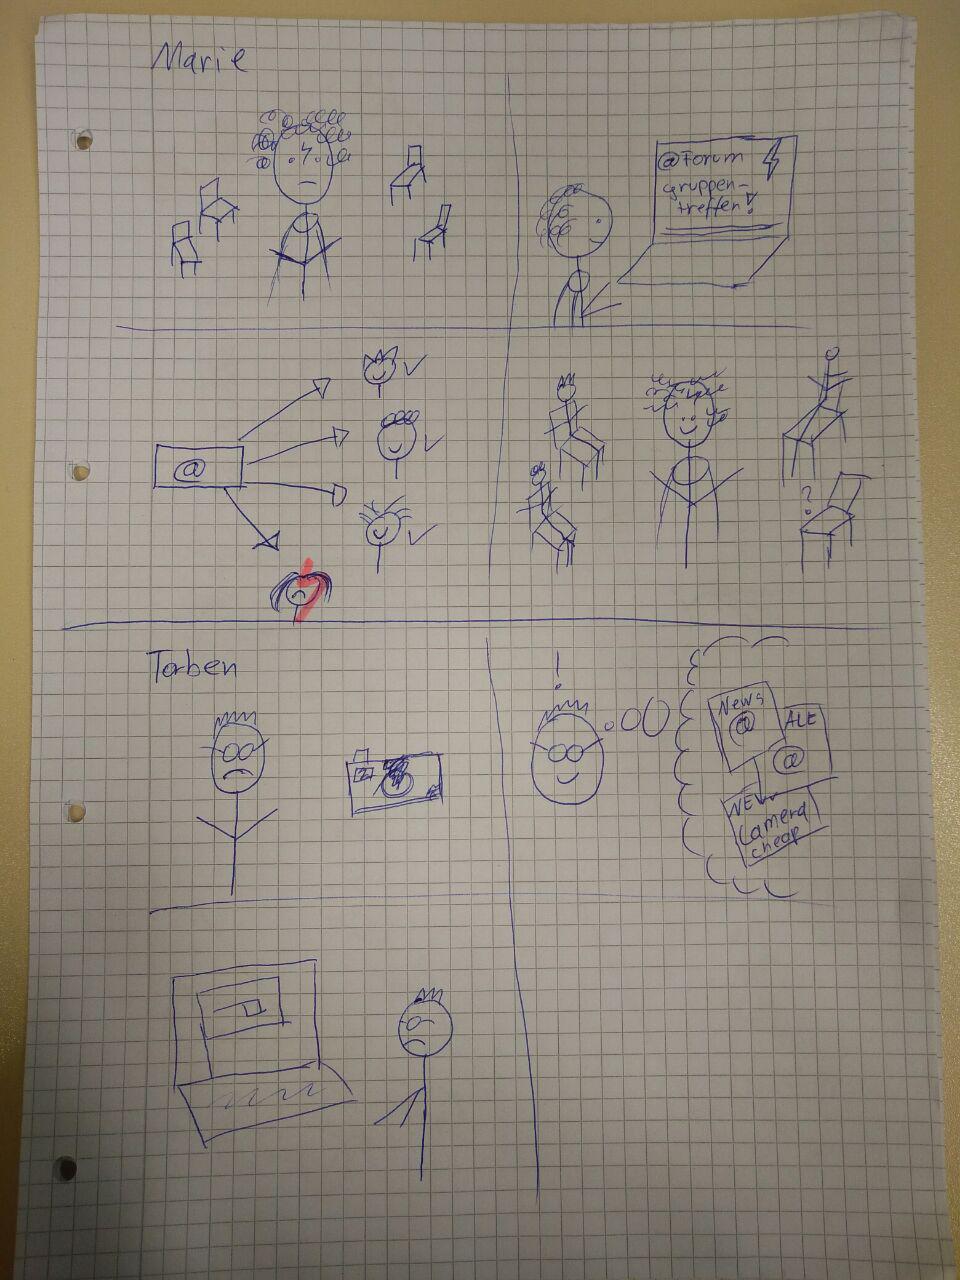 Marie
@Forum
gruppen-
treffen!
@
?
Torben
!
News
@
ALE
@
NEW
Camera
cheap